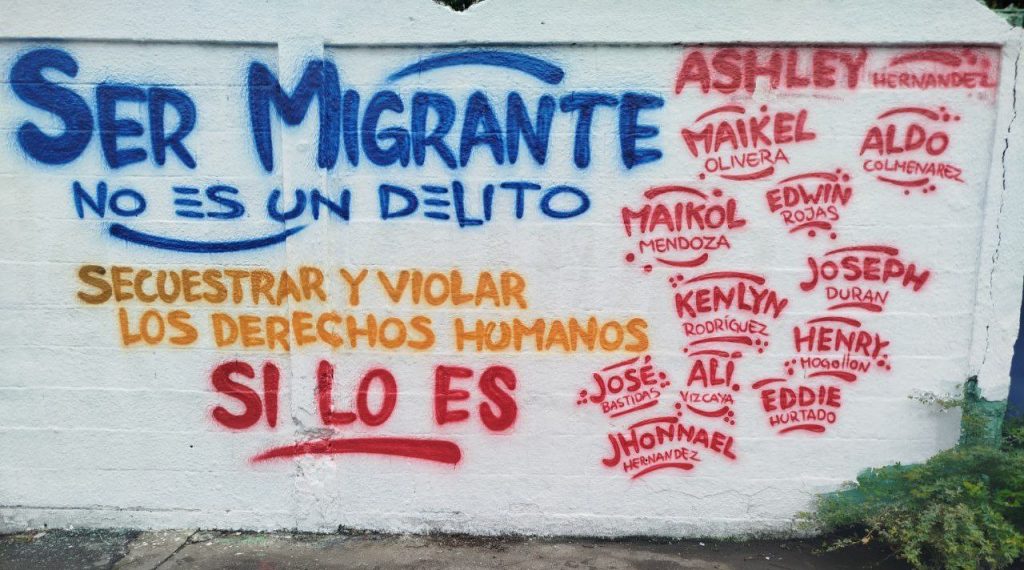 SER MIGRANTE
NO ES UN DELITO
SECUESTRAR Y VIOLAR
LOS DERECHOS HUMANOS
SI LO ES
ASHLEY
HERNANDEZ
MAIKEL
OLIVERA
ALDO
COLMENAREZ
EDWIN
ROJAS
MAIKOL
MENDOZA
JOSEPH
DURAN
KENLYN
RODRÍGUEZ
HENRY
MOGOLLON
JOSÉ
BASTIDAS
ALI
VIZCAYA
EDDIE
HURTADO
JHONNAEL
HERNANDEZ